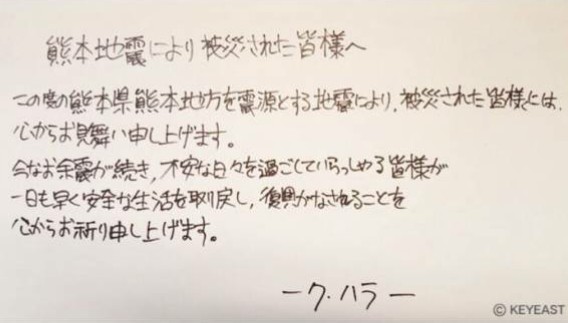 熊本地震により被災された皆様へ
この度の熊本県熊本地方を震源とする地震により、被災された皆様には、
心からお見舞い申し上げます。
今なお余震が続き、不安な日々を過ごしていらっしゃる皆様が
一日も早く安全な生活を取り戻し、復興がなされることを
心からお祈り申し上げます。
ーク・ハラー
© KEYEAST